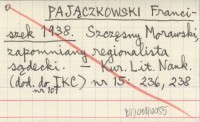 PAJĄCZKOWSKI Franci-
szek 1938. Szczęsny Morawski,
zapomniany regionalista
sądecki. — Kur. Lit. Nauk.
(dod. do IKC) nr 15: 236, 238
nr 107